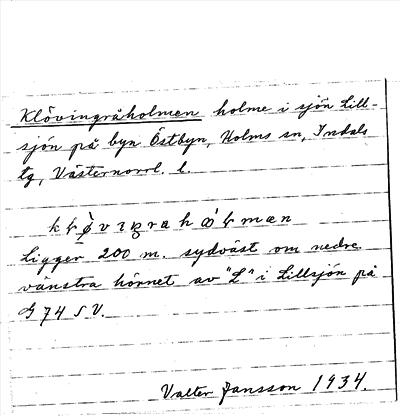 Klövingråholmen holme i sjön Lill-
sjön på byn Östbyn, Holms sn, Indals
tg, Västernorrl. l.
Ligger 200 m. sydväst om nedre
vänstra hörnet av "L" i Lillsjön på
G 74 S V.
Valter Jansson 1934.